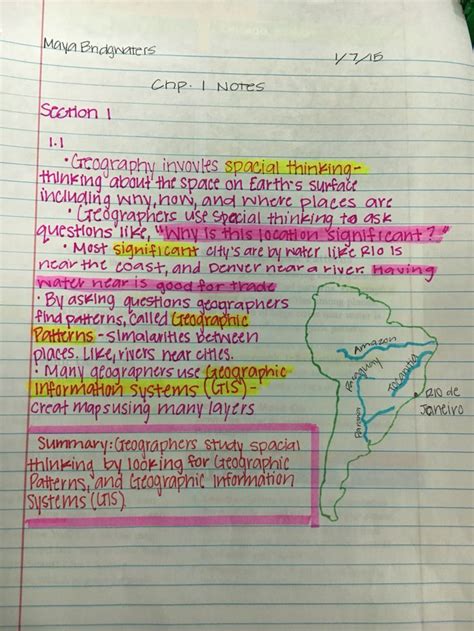 Maya Bridgwaters
1/7/15
Chp. 1 Notes
Section 1
1.1
• Geography invovles spacial thinking-
thinking about the space on Earth's surface
including why, how, and where places are
• Geographers use spacial thinking to ask
questions like, "Why is this location significant?"
• Most significant city's are by water like RIO is
near the coast, and Denver near a river. Having
water near is good for trade
• By asking questions geographers
find patterns, called Geographic
Patterns - simalarities between
places. Like, rivers near cities.
• Many geographers use Geographic
Information Systems (GIS)-
creat maps using many layers
Amazon
Paraguay
Tocantia
Parana
RIO de
Janeiro
Summary: Geographers study spacial
thinking by looking for Geographic
Patterns, and Geographic Information
Systems (GIS).